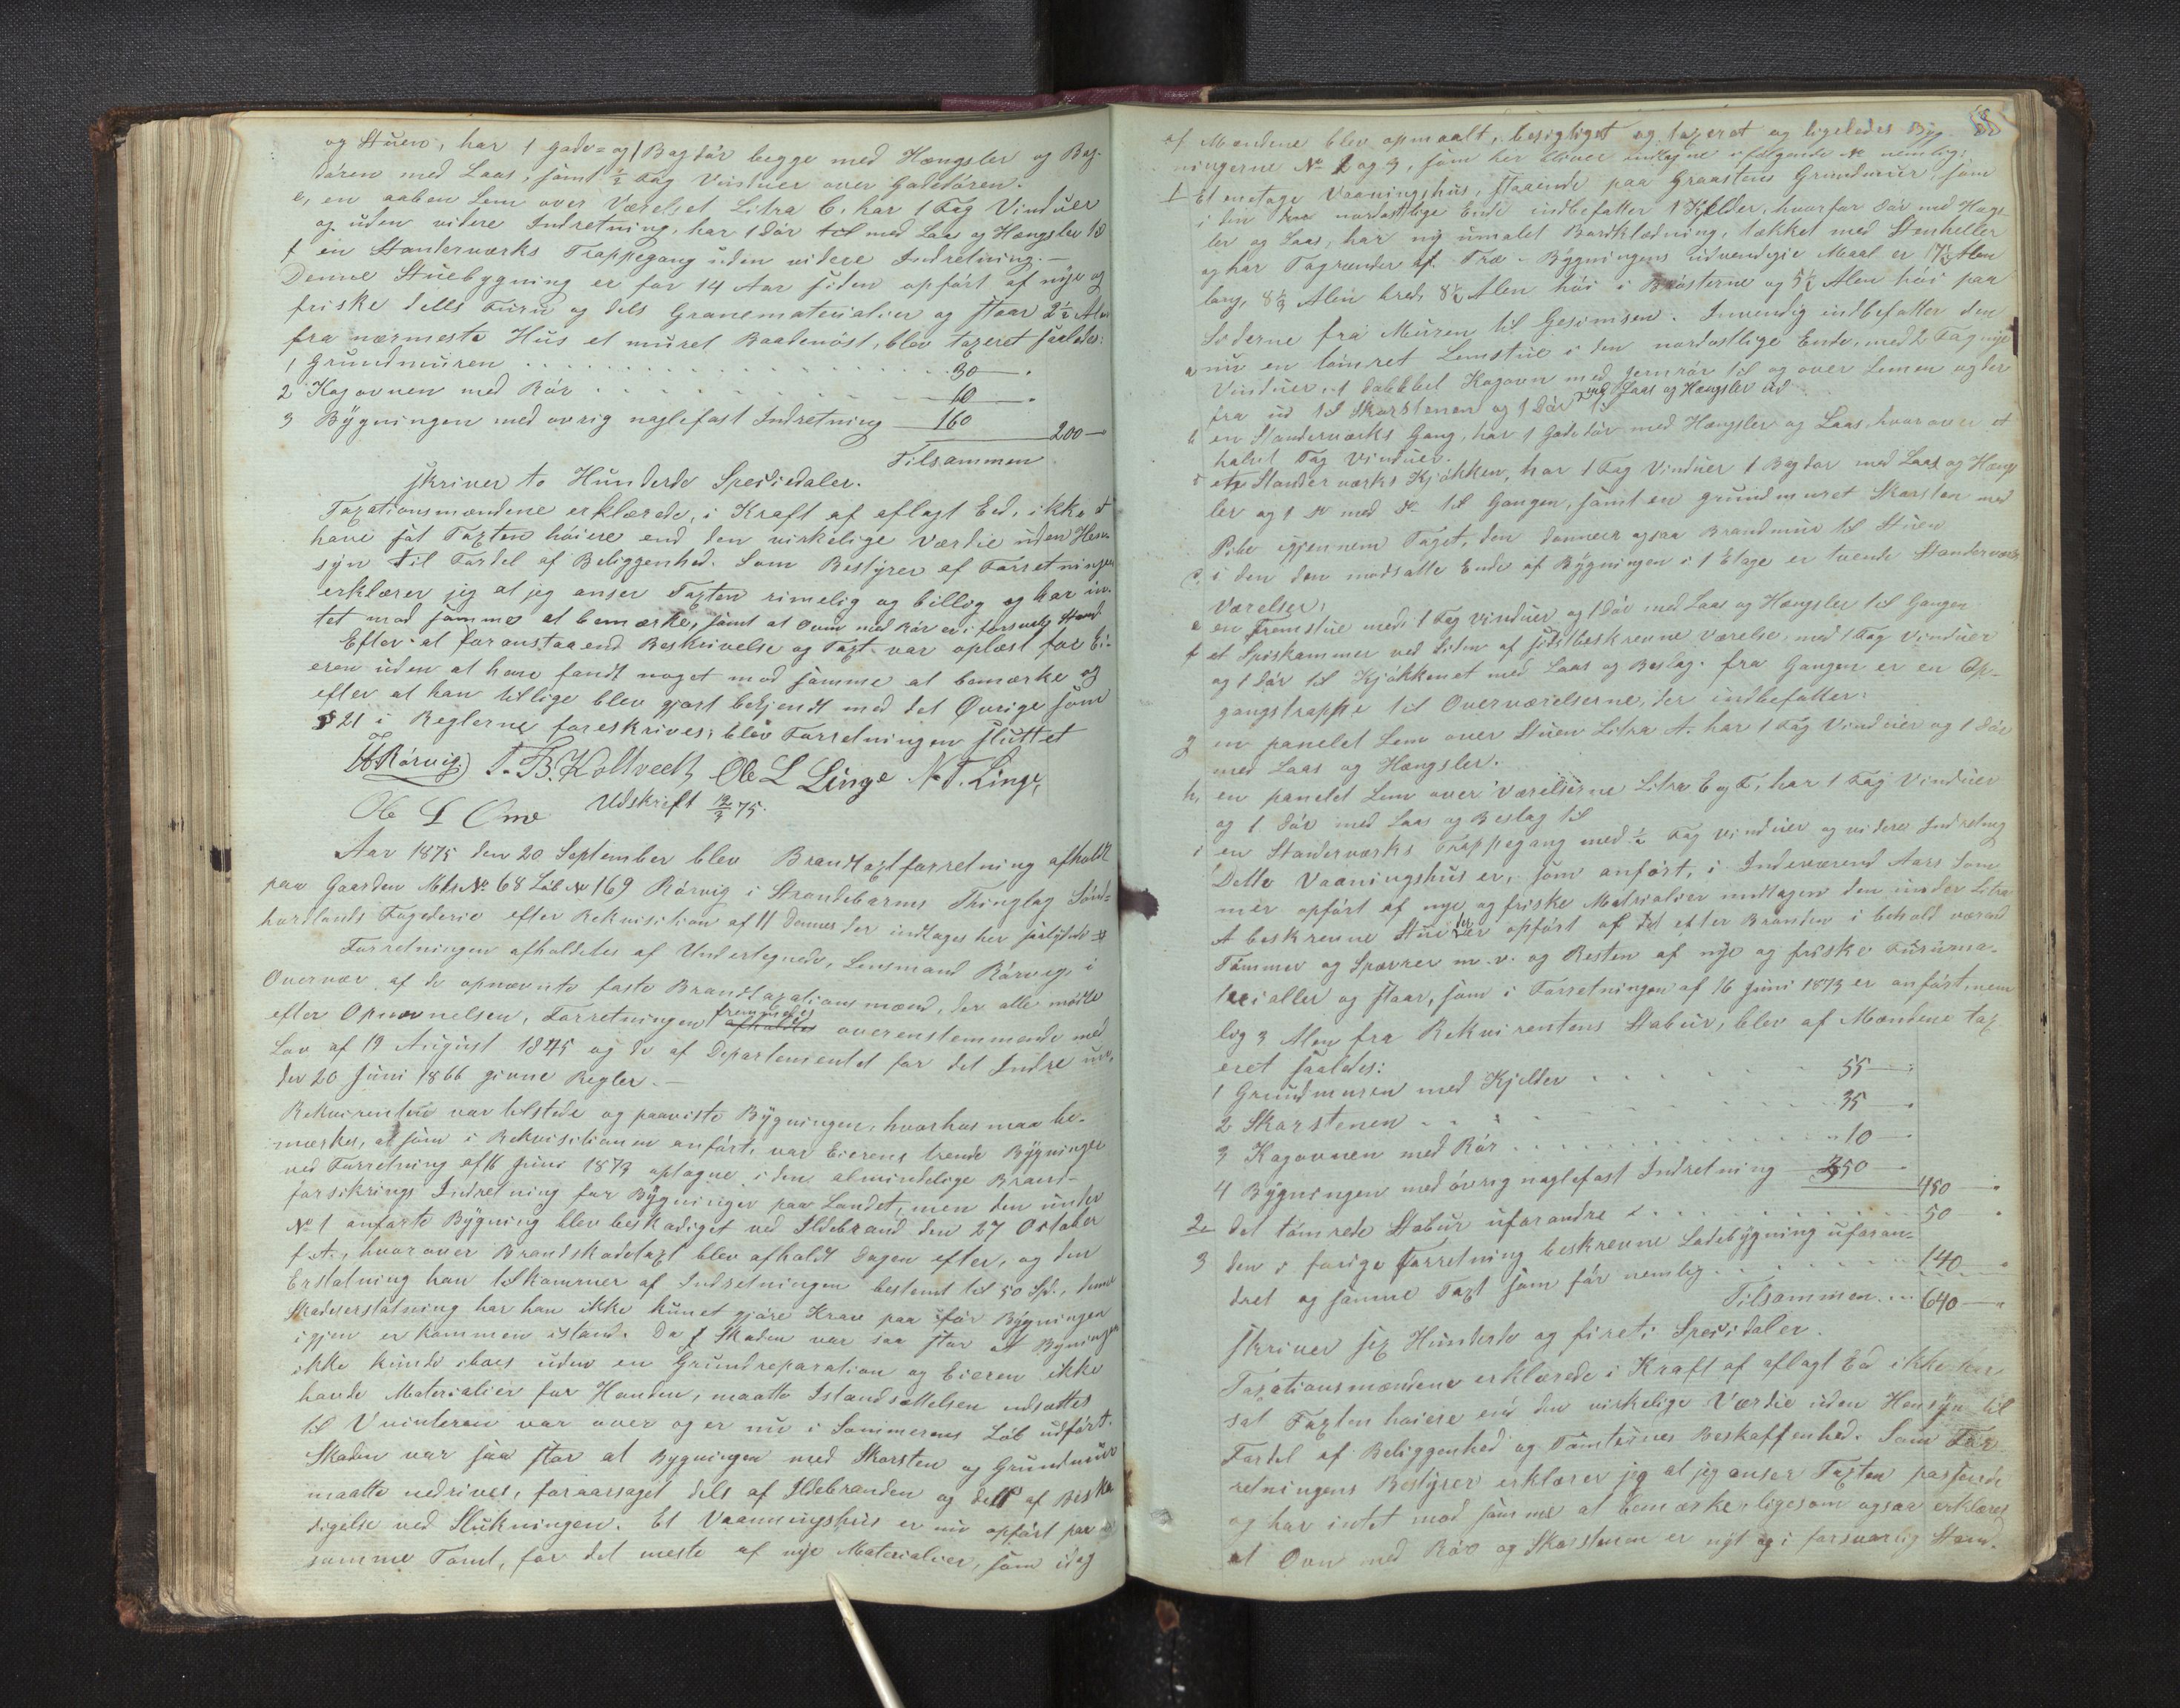 og Stuen, har 1 Gade= og 1 Bagdør begge med Hængsler og Bag-
døren med Laas, samt ½ Fag Vinduer over Gadedøren.
e, en aaben Lem over Værelset Litra C. har 1 Fag Vinduer
og uden videre Indretning, har 1 Dør til med Laas og Hængsler
f en Standerværks Trappegang uden videre Indretning.—
Denne Stuebygning er for 14 Aar siden opført af nye og
friske dells Furu og dels Granematerialier og staar 2½ Alen
fra nærmeste Hus et muret Baadenøst, blev taxeret saaledes:
1 Grundmuren . . . . 30 —
2 Kagovnen med Rør . . . . 10 —
3 Bygningen med øvrig naglefast Indretning 160
Tilsammen 200 —
skriver to Hunderde Speciedaler.
Taxationsmændene erklærede, i Kraft af aflagt Eed, ikke at
have sat Taxten høiere end den virkelige Værdie uden Hen-
syn til Fordel af Beliggenhed. Som Bestyrer af Forretningen
erklærer jeg at jeg anser Taxten rimelig og billig og har in-
tet mod samme at bemærke, samt at Ovn med Rør er i forsvarlig Stand
Efter at foranstaaend Beskrivelse og Taxt var oplæst for Ei-
eren uden at have fandt noget mod samme at bemærke og
efter at han tillige blev gjort bekjendt med det Øvrige som
§ 21 i Reglerne foreskrives; blev Forretningen sluttet
Rørvig. T. B. Holtveck Ole L Linge N. T. Linge,
Ole L Omo Udskrift 12/3 75.
Aar 1875 den 20 September blev Brandtaxtforretning afholdt
paa Gaarden Mts No. 68 Løb No 169 Rørvig i Strandebarms Thinglag Sønd-
hordlands Fogederie efter Rekvisition af 11 Dennes der indtages her
Forretningen afholdtes af Undertegnede, Lensmand Rørvig i
Overvær af de opnævnte faste Brandtaxationsmænd, der alle mødte
efter Opnævnelsen, Forretningen fremmedes afholdtes overenstemmende med
Lov af 19 August 1845 og de af Departementet for det Indre un-
der 20 Juni 1866 givne Regler.—
Rekvirenten var tilstede og paaviste Bygningen, hvorhos maa be-
mærkes, at som i Rekvisitionen anført, var Eierens trende Bygninger
ved Forretning af 16 Juni 1873 optagne i den almindelige Brand-
forsikrings Indretning for Bygninger paa Landet, men den under
No 1 anførte Bygning blev beskadiget ved Ildebrand den 27 October
f. A., hvorover Brandskadetaxt blev afholdt Dagen efter, og den
Erstatning han tilkommer af Indretningen bestemt til 50 Spd., denne
Skadeserstatning har han ikke kunet gjøre Krav paa før Bygningen
igjen er kommen istand. Da Skaden var saa stor at Bygningen
ikke kunde iboes uden en Grundreparation og Eieren ikke
havde Materialier for Haanden, maatte Istandsættelsen udsættes
til Vvinteren var over og er nu i Sommerens Løb udført.
Skaden var saa stor at Bygningen med Skorsten og Grundmuur
maatte nedrives, foraarsaget dels af Ildebranden og dels af Beska
digelse ved Slukningen. Et Vaaningshus er nu opført paa
samme Tomt, for det meste af nye Materialier, som idag
af Mændene blev opmaalt, besigtiget og taxeret og ligeledes Byg-
ningerne No 2 og 3, som her bliver indtagne i følgende No nemlig:
1 Et enetage Vaaningshus, staaende paa Graastens Grundmur, som
i den nordostlige Ende indbefatter 1 Kjelder, hvorfor Dør med Hægs-
ler og Laas, har ny umalet Bordklædning, tækket med Stenheller
og har Tagrender af Træ. Bygningens udvendige Maal er 17½ Alen
lang, 8⅓ Alen bred, 8½ Alen høi i Brøsterne og 5½ Alen høi paa
Siderne fra Muren til Gesimsen. Invendig indbefatter den
a nu en tømret Lemstue i den nordostlige Ende, med 2 Fag nye
Vinduer, 1 dobbbel Kagovn med Jernrør til og over Lemen og der
fra ud til Skorstenen og 1 Dør med Laas og Hængsler ud til
b en Standerværks Gang, har 1 Gadedør med Hængsler og Laas, hvorover et
halvt Fag Vinduer.
c et Standerværks Kjøkken, har 1 Fag Vinduer 1 Bagdør med Laas og Hængs
ler og 1 do med do til Gangen, samt en grundmuret Skorsten med
Pibe igjennem Taget, den danner ogsaa Brandmur til Stuen
d, i den den modsatte Ende af Bygningen i 1 Etage er tvende Standerværks
Værelser;
e en Fremstue med 1 Fag Vinduer og 1 Dør med Laas og Hængsler til Gangen
f et Spiskammer ved Siden af sidstbeskrevne Værelse, med 1 Fag Vinduer
og 1 Dør til Kjøkkenet med Laas og Beslag. fra Gangen er en Op-
gangstrappe til Overværelserne, der indbefatter:
g en panelet Lem over Stuen Litra A. har 1 Fag Vinduer og 1 Dør
med Laas og Hængsler.
h, en panelet Lem over Værelserne Litra E og F, har 1 Fag Vinduer
og 1 Dør med Laas og Beslag til
i en Standerværks Trappegang med ½ Fag Vinduer og videre Indretning
Dette Vaaningshus er, som anført, i Indeværend Aars Som
mer opført af nye og friske Materialier undtagen den under Litra
A beskrevne Stue der er opført af det efter Branden i behold værend
Tømmer og Sparrer m. v. og Resten af nye og friske Furuma-
terialier og staar, som i Forretningen af 16 Juni 1873 er anført, nem
lig 3 Alen fra Rekvirentens Stabur, blev af Mændene tax
eret saaledes:
1 Grundmuren med Kjelder . . . . 55 —
2 Skorstenen . . . . 35 —
3 Kagovnen med Rør . . . . 10 —
4 Bygningen med øvrig naglefast Indretning 350 — 450 —
2 det tømrede Stabur uforandret . . . . 50
3 den i forige Forretning beskrevne Ladebygning uforan-
dret og samme Taxt som før nemlig . . . . 140
Tilsammen . . . 640 —
skriver sex Hunderde og fireti Specidaler.
Taxationsmændene erklærede i Kraft af aflagt Ed ikke har
sat Taxten høiere end den virkelige Værdie uden Hensyn til
Fordel af Beliggenhed og Tomternes Beskaffenhed. Som For
retningens Bestyrer erklærer jeg at jeg anser Taxten passende
og har intet mod samme at bemærke, ligesom ogsaa erklæres
at Ovn med Rør og Skorstenen er nyt og i forsvarlig Stand.